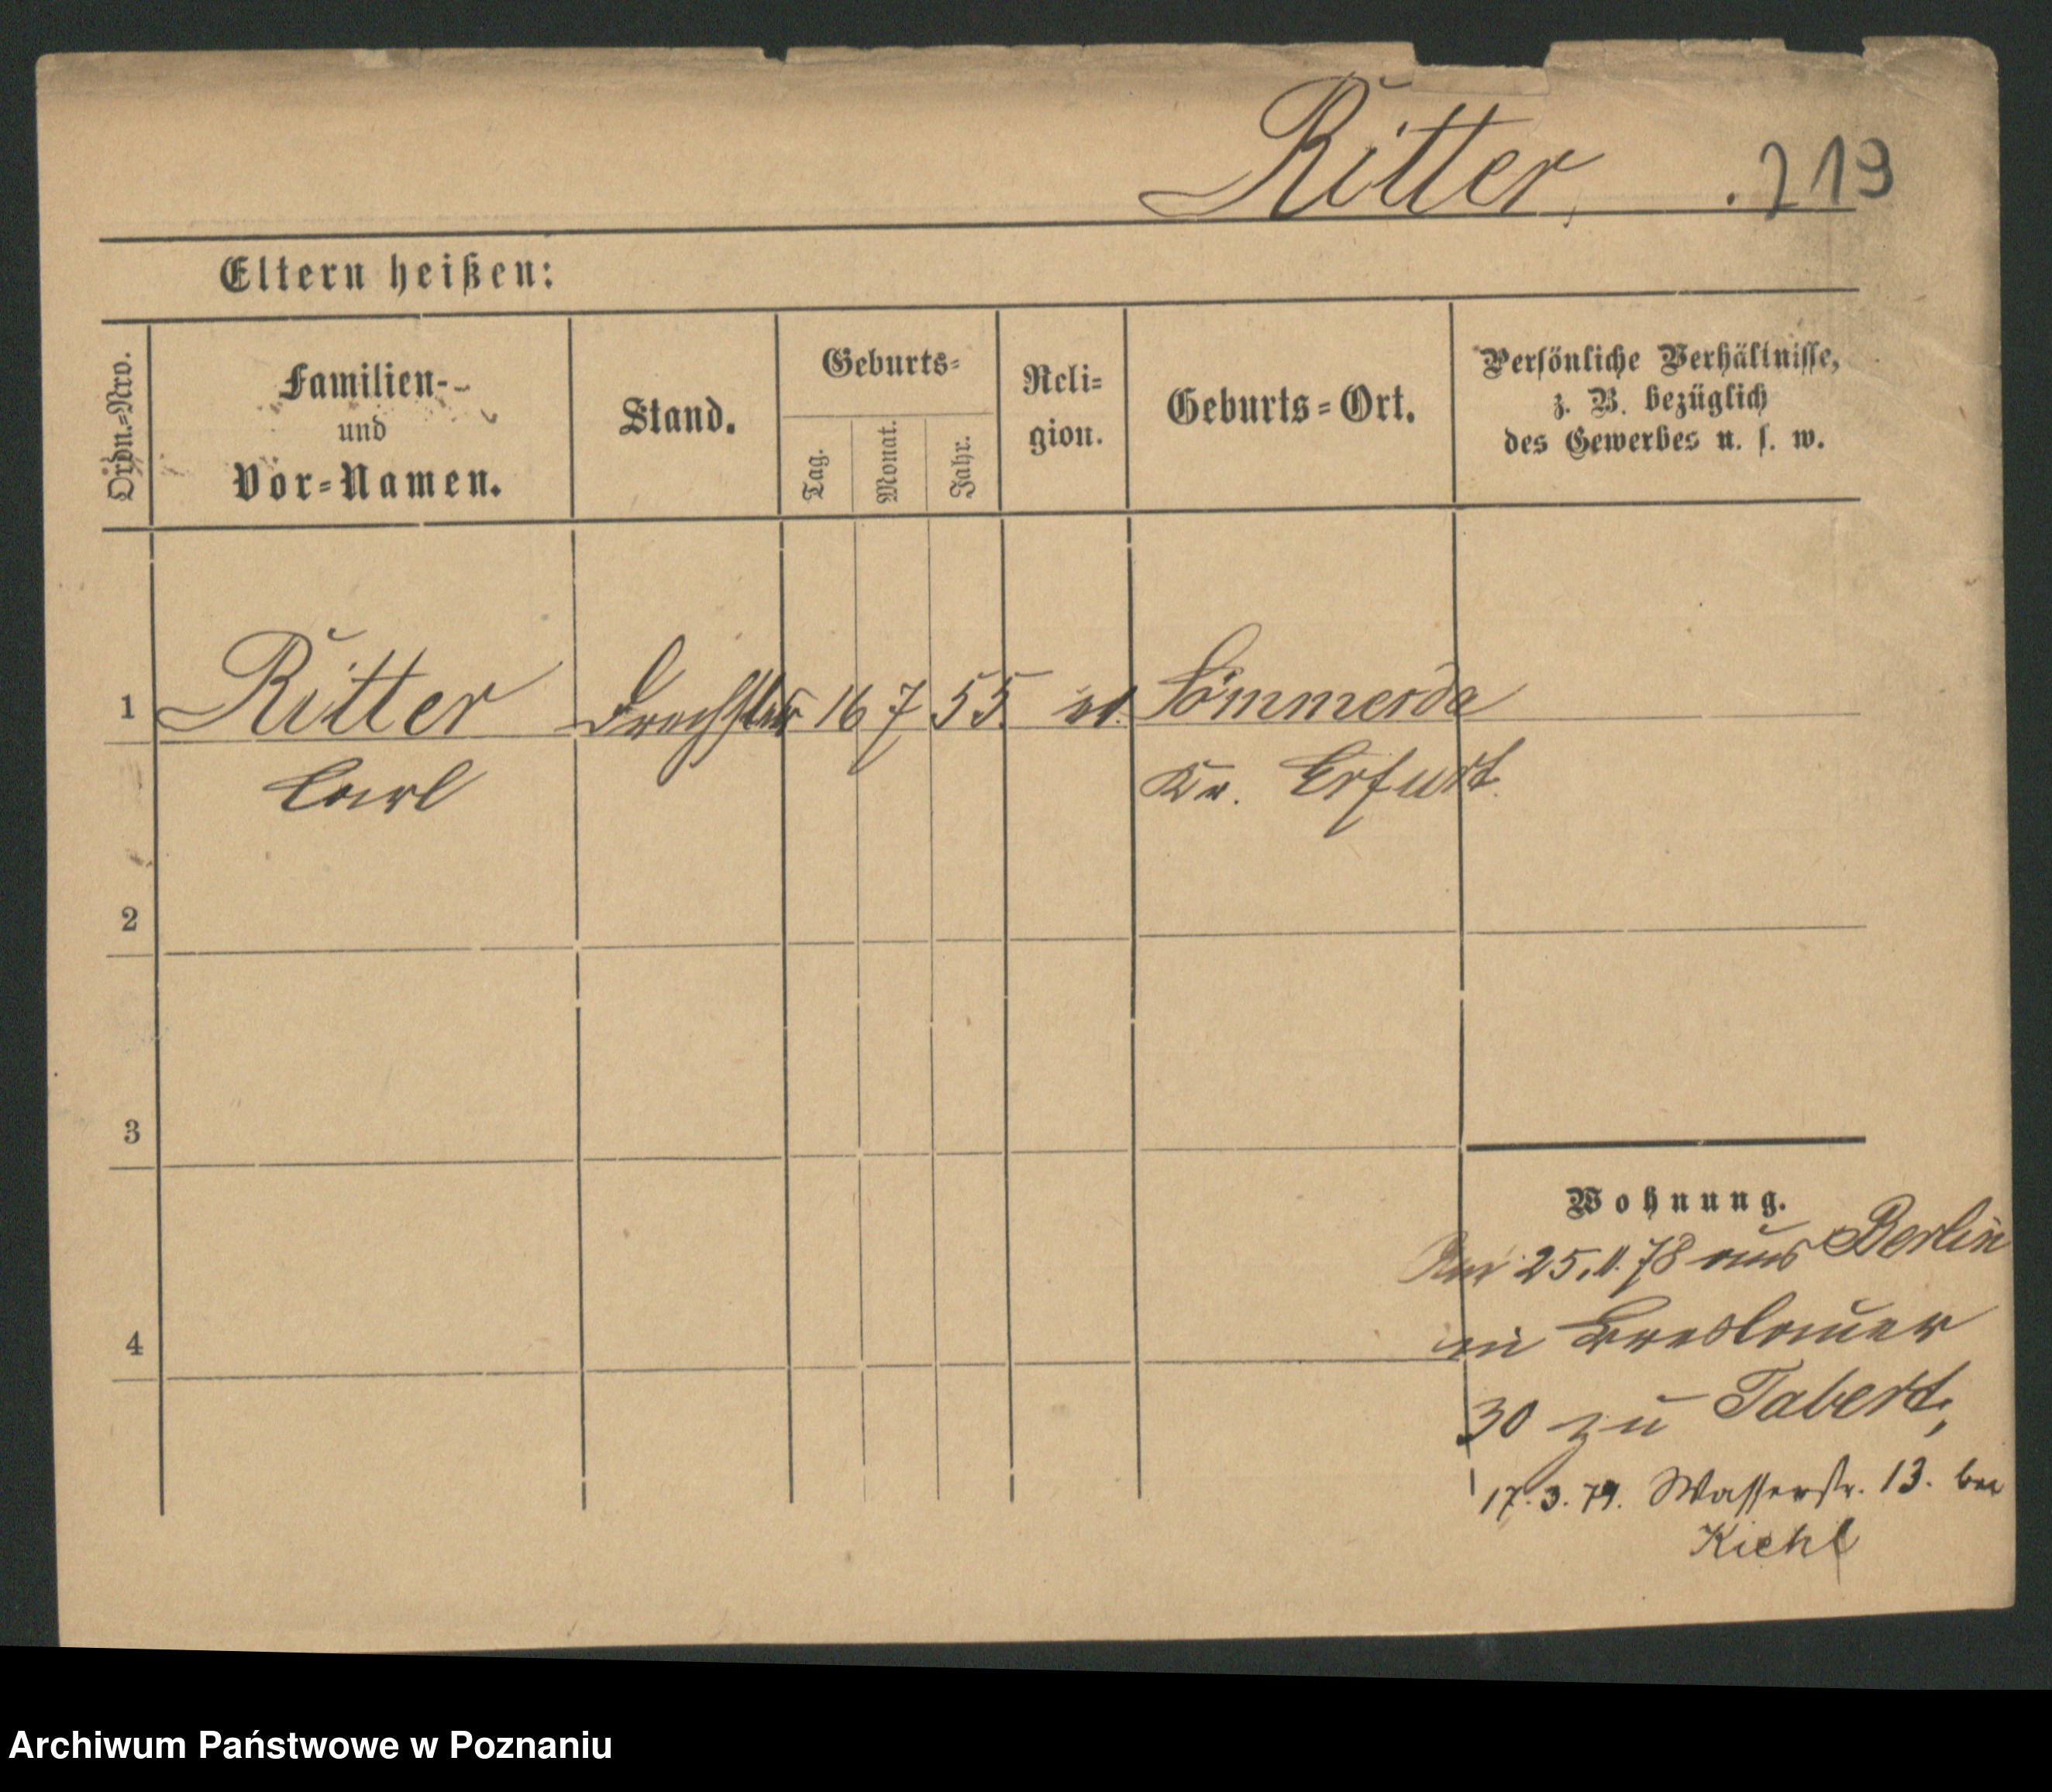 Ritter
. 219
Eltern heißen:
Ordn.-Nro.
Familien-
und
Vor-Namen.
Stand.
Geburts-
Tag.
Monat.
Jahr.
Reli-
gion.
Geburts-Ort.
Persönliche Verhältnisse,
z. B. bezüglich
des Gewerbes u. s. w.
1 Ritter Drechsler 16 7 55. ev. Sömmerda
Carl Kr. Erfurt.
2
3
Wohnung.
25.11.78 aus Berlin
4
in Breslauer
30 zu Tabert,
17.3.79. Wasserstr. 13. bei
Kiehl
Archiwum Państwowe w Poznaniu